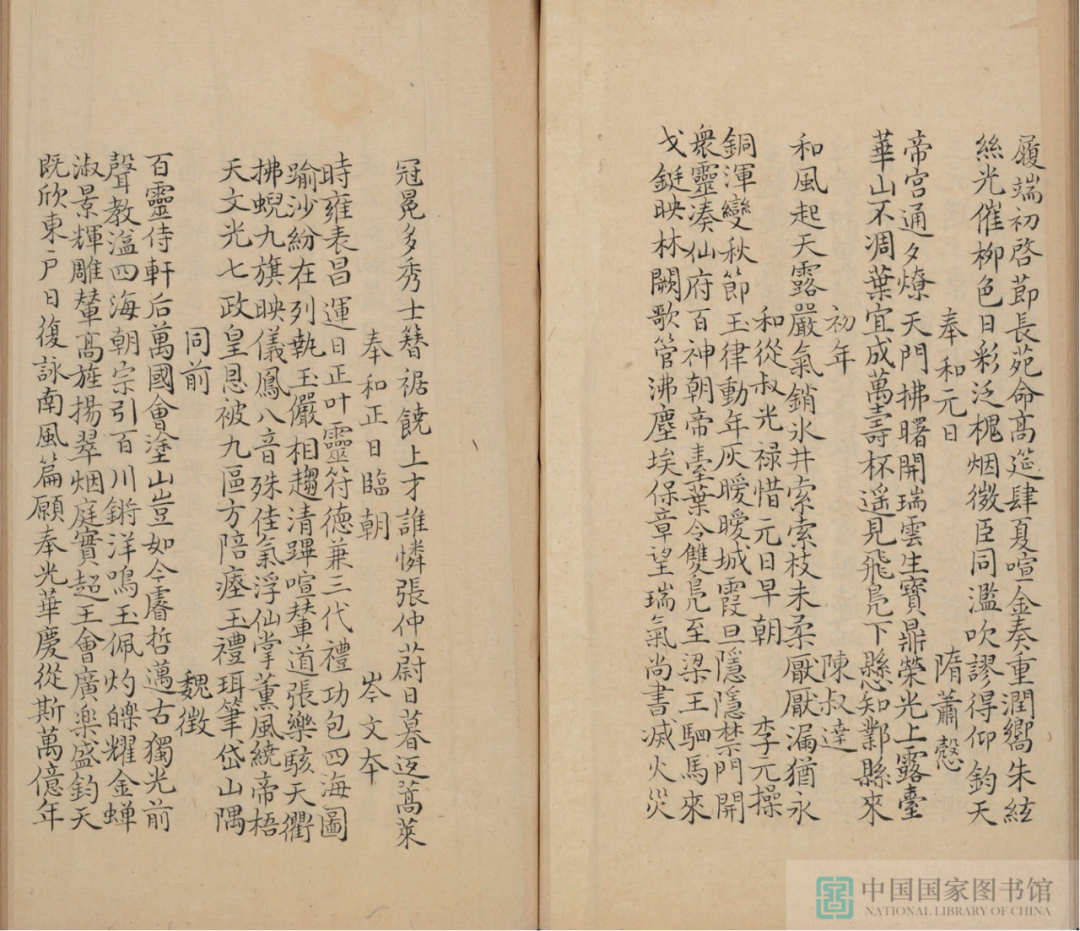 履端初啓節長苑命髙筵肆夏喧金奏重潤嚮朱絃
絲光催柳色日彩泛槐烟微臣同濫吹謬得仰鈞天
奉和元日 隋蕭慤
帝宫通夕燎天門拂曙開瑞雲生寶鼎榮光上露臺
華山不凋葉宜成萬壽杯遥見飛鳬下懸知鄴縣來
初年 陳叔達
和風起天露嚴氣銷氷井索索枝未柔厭厭漏猶永
和從叔光禄惜元日早朝 李元操
銅渾變秋節玉律動年灰曖曖城霞旦隱隱禁門開
衆靈湊仙府百神朝帝臺葉令雙鳬至梁王駟馬來
戈鋋映林闕歌管沸塵埃保章望瑞氣尚書滅火災
冠冕多秀士簪裾饒上才誰憐張仲蔚日暮返蒿萊
奉和正日臨朝 岑文本
時雍表昌運日正叶靈符德兼三代禮功包四海圖
踰沙紛在列執玉儼相趨清蹕喧輦道張樂駭天衢
拂蜺九旗映儀鳳八音殊佳氣浮仙掌薰風繞帝梧
天文光七政皇恩被九區方陪瘞玉禮珥筆岱山隅
同前 魏徵
百靈侍軒后萬國會塗山豈如今睿哲邁古獨光前
聲教溢四海朝宗引百川鏘洋鳴玉佩灼爍耀金蟬
淑景輝雕輦髙旌揚翠烟庭實超王會廣楽盛鈞天
既欣東户日復詠南風篇願奉光華慶從斯萬億年
中国国家图书馆
NATIONAL LIBRARY OF CHINA